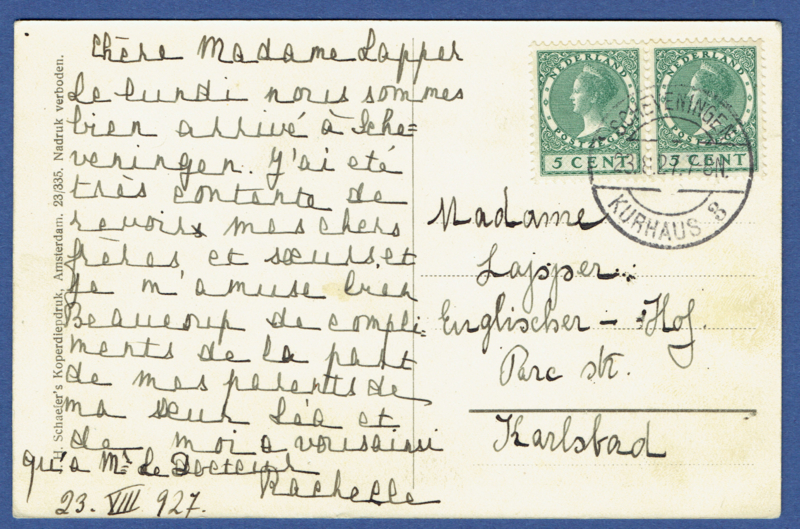 Chère Madame Lapper
Le lundi nous sommes
bien arrivé à Sche=
veningen. J'ai eté
très contante de
revoir mes chers
frères et sœurs et
je m'amuse bien
Beaucoup de compli=
ments de la part
de mes parents de
ma sœur Léa et
de moi a vous ainsi
qu'a Mr. Le Docteur
Rachelle
23. VIII 927.
H. Schaefer's Koperdiepdruk, Amsterdam. 23/335. Nadruk verboden.
NEDERLAND
POSTZEGEL
5 CENT
NEDERLAND
POSTZEGEL
5 CENT
SCHEVENINGEN
23.8.27.7-8N.
KURHAUS 3
Madame
Lapper
Englischer - Hof.
Parc str.
Karlsbad